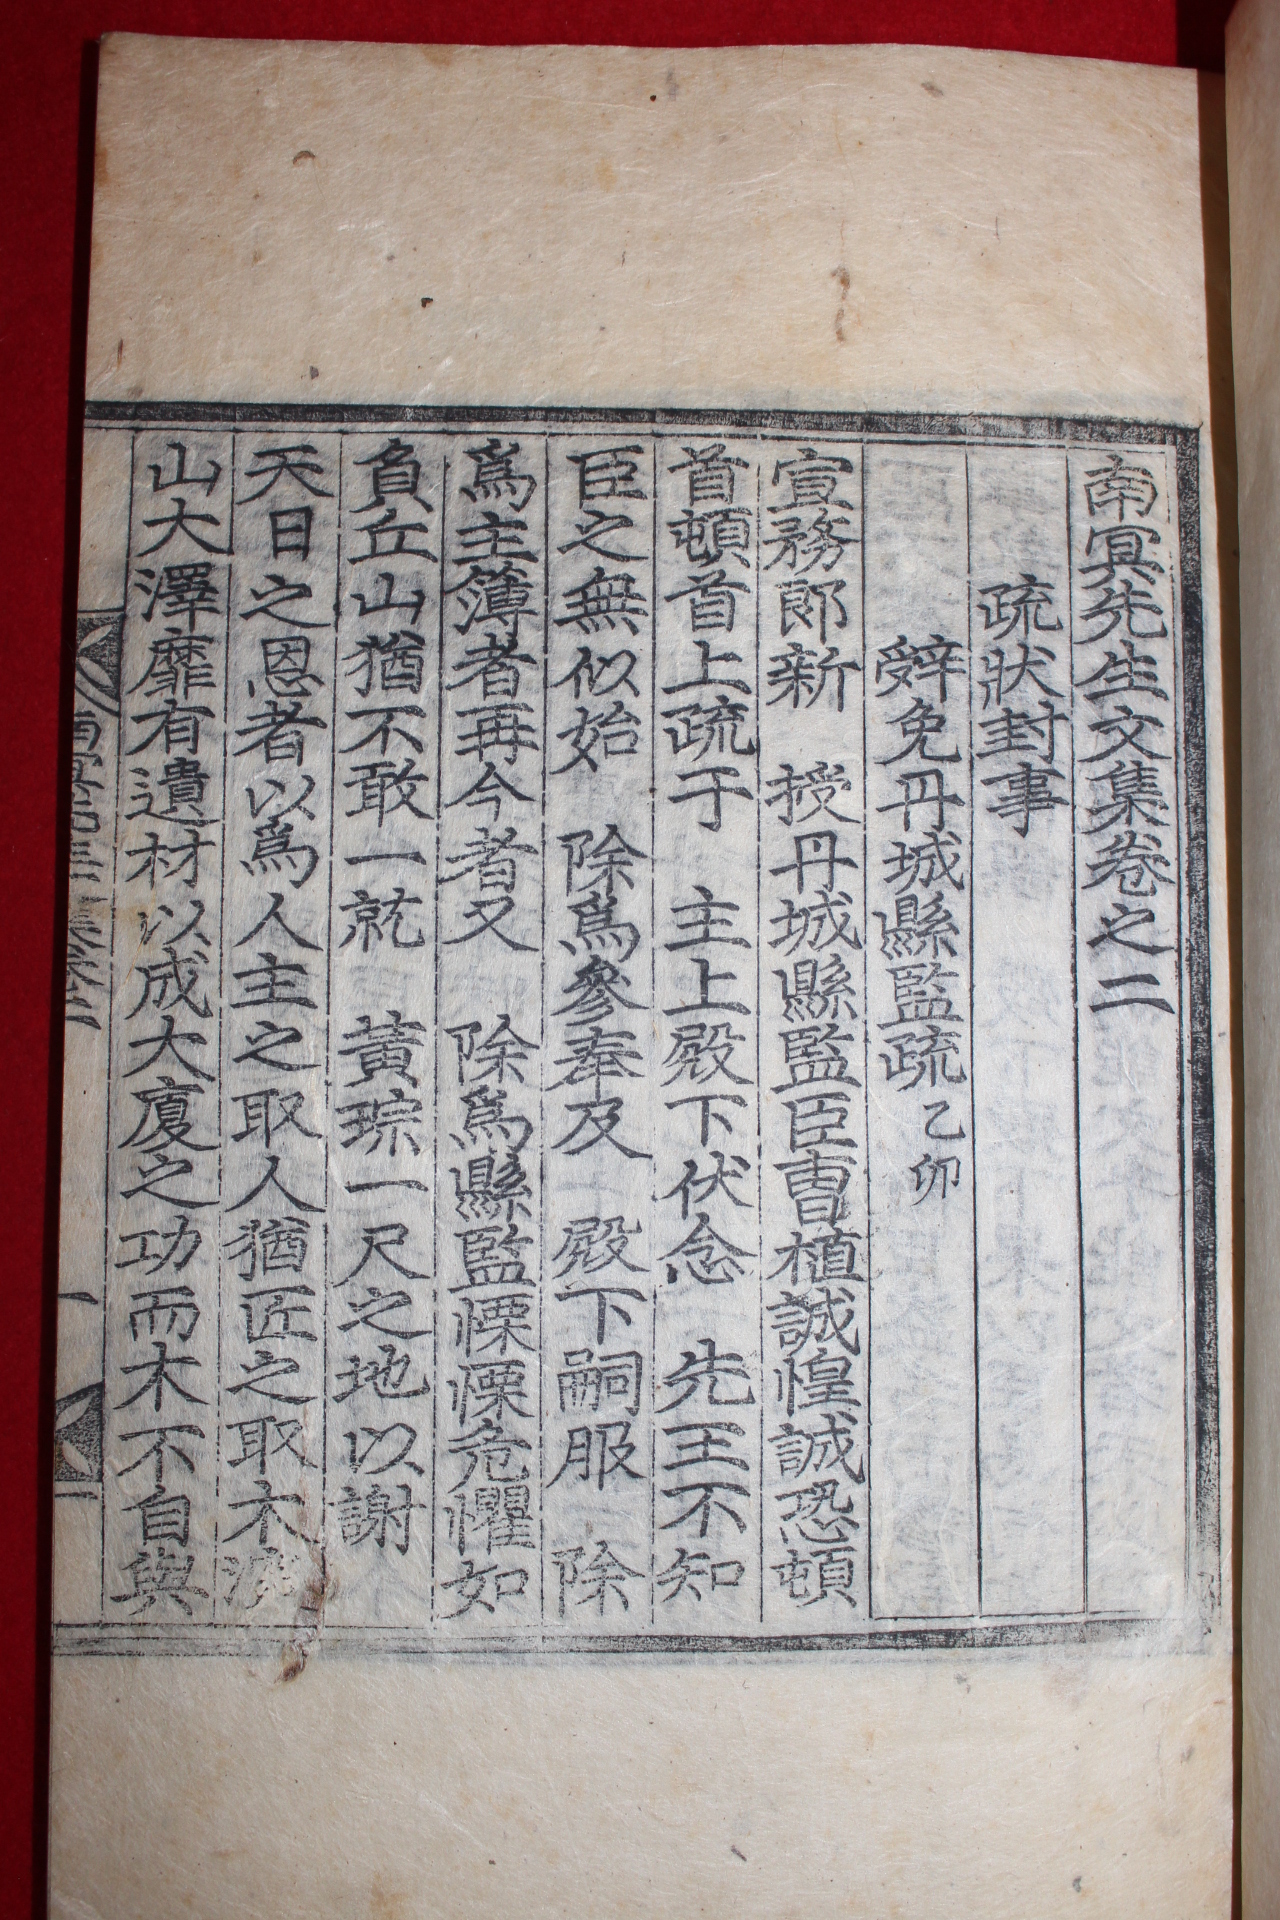 南冥先生文集卷之二
疏狀封事
辤免丹城縣監疏 乙卯
宣務郎新 授丹城縣監臣曺植誠惶誠恐頓
首頓首上疏于 主上殿下伏念 先王不知
臣之無似始 除爲參奉及 殿下嗣服 除
爲主簿者再今者又 除爲縣監慄慄危懼如
負丘山猶不敢一就 黃琮一尺之地以謝
天日之恩者以爲人主之取人猶匠之取木深
山大澤靡有遺材以成大廈之功而木不自與
一